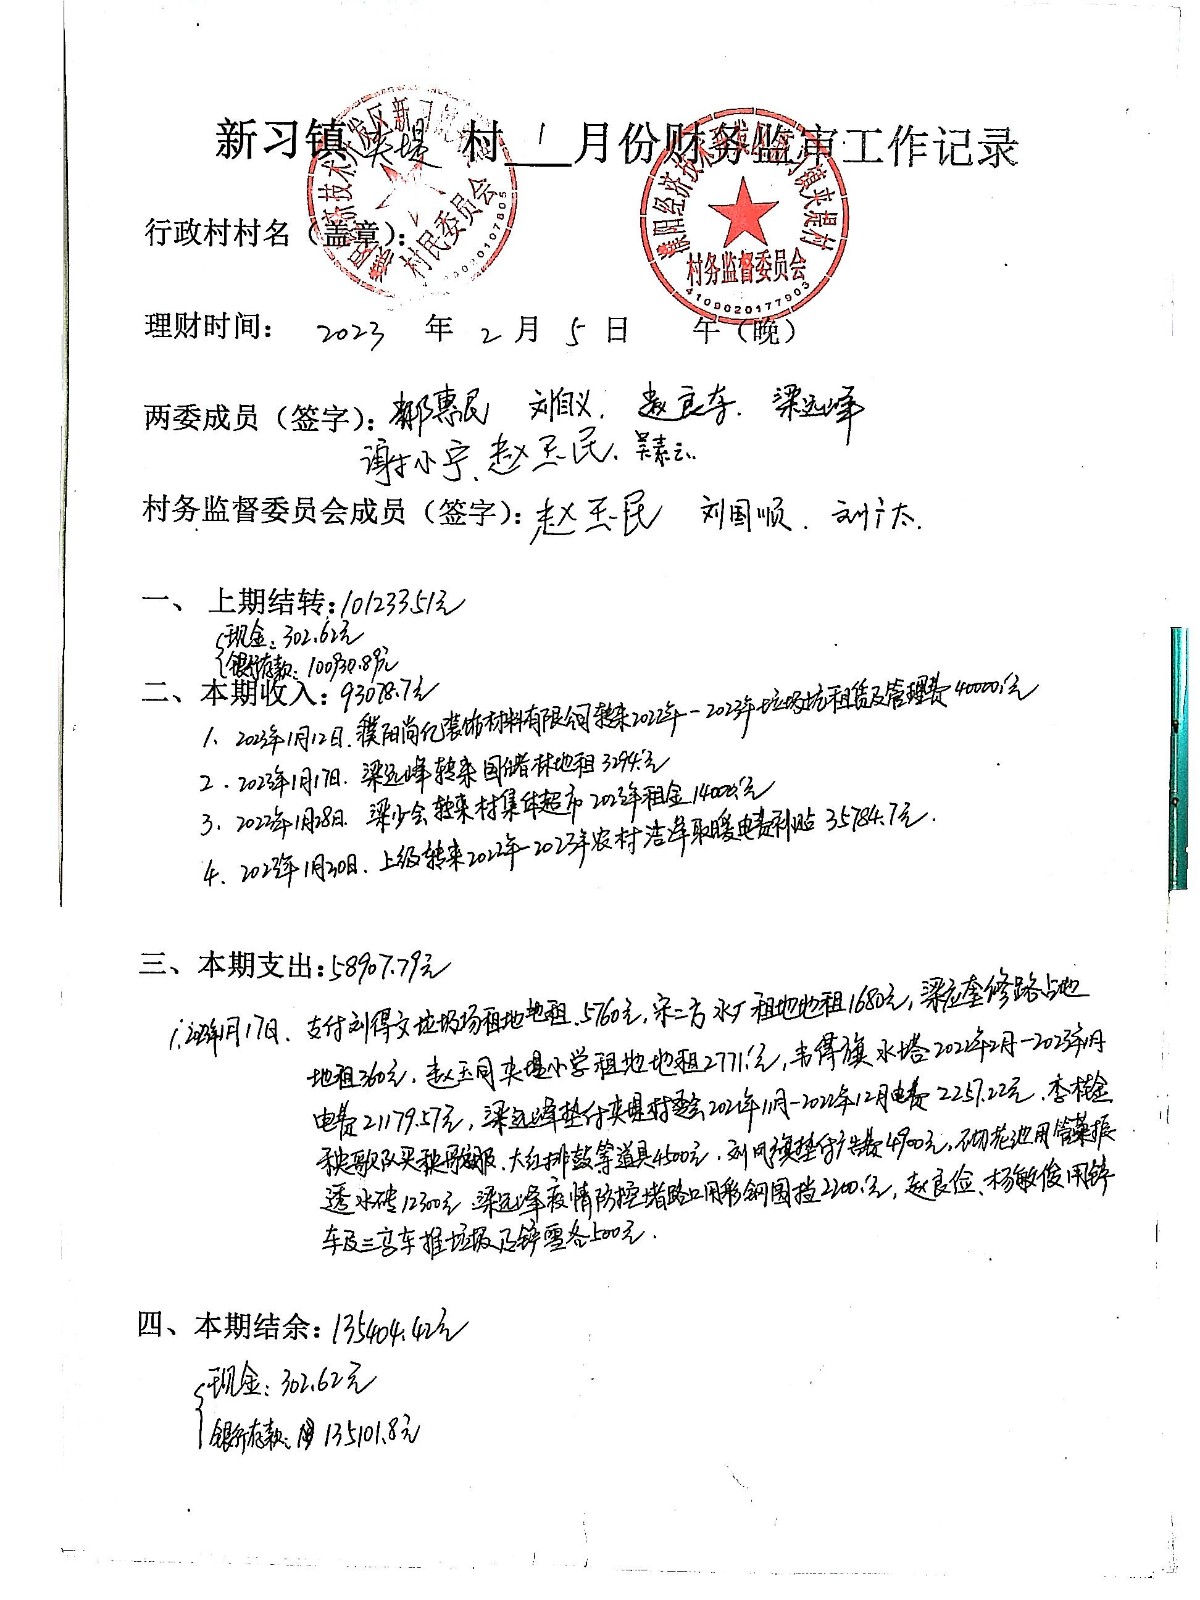 新习镇夹堤村1月份财务监审工作记录
行政村村名（盖章）:
村民委员会
濮阳经济技术开发区新习镇夹堤村
村务监督委员会
4109020177903
理财时间: 2023 年 2 月 5 日 午（晚）
两委成员（签字）: 郝惠民 刘自义. 赵良存. 梁远峰
谢小宁、赵玉民、吴素云.
村务监督委员会成员（签字）: 赵玉民 刘国顺. 刘广太.
一、 上期结转: 101233.51元
现金: 302.62元
银行存款: 100930.89元
二、本期收入: 93078.7元
1. 2023年1月12日. 濮阳尚亿装饰材料有限公司转来2022年-2023年垃圾坑租赁及管理费40000元
2. 2023年1月17日. 梁远峰转来国储林地租3294元
3. 2022年1月28日. 梁少会转来村集体超市2023年租金14000元
4. 2023年1月30日. 上级转来2022年-2023年农村洁净取暖电费补贴 35784.7元.
三、本期支出: 58907.79元
1. 1月17日. 支付刘得文垃圾场租地地租. 5760元, 宋二方水厂租地地租1680元, 梁应奎修路占地
地租360元. 赵玉同夹堤小学租地地租2771元, 韦得旗水塔2022年2月-2023年1月
电费21179.57元, 梁远峰垫付夹堤村委会2021年11月-2022年12月电费2257.22元. 李桂金
秧歌队买秧歌服. 大红排鼓等道具4500元. 刘凤旗垫付广告费4900元, 砌花池用
透水砖12300元 梁远峰疫情防控堵路口用彩钢围挡2200元, 赵良俭、杨敏俊用铲
车及三马车推垃圾及铲雪各500元.
四、本期结余: 135404.42元
现金: 302.62元
银行存款: 135101.8元